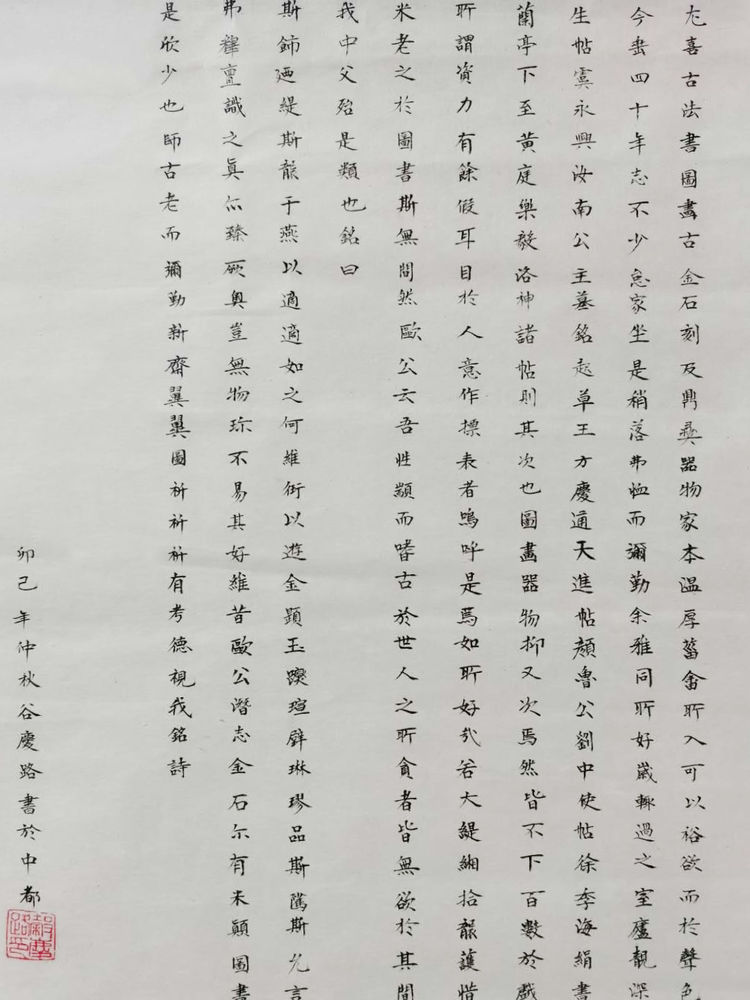 尤喜古法書圖畫古金石刻及鼎彝器物家本溫厚菑畬所入可以裕欲而於聲色
今垂四十年志不少怠家坐是稍落弗恤而彌勤余雅同所好歲輒過之室廬靚深
生帖虞永興汝南公主墓銘起草王方慶通天進帖顏魯公劉中使帖徐季海絹書
蘭亭下至黃庭樂毅洛神諸帖則其次也圖畫器物抑又次焉然皆不下百數於戲
所謂資力有餘假耳目於人意作摽表者嗚呼是焉如所好哉若大緹緗拾襲護惜
米老之於圖書斯無間然歐公云吾性顓而嗜古於世人之所貪者皆無欲於其間
我中父殆是類也銘曰
斯飾迺緹斯襲于燕以適適如之何維衒以遊金題玉躞瑄璧琳璆品斯雋斯允言
弗釋亶識之真尒臻厥奧豈無物珎不易其好維昔歐公潛志金石尒有米顛圖書
是欣少也師古老而彌勤新齋翼翼圖祈祈有考德視我銘詩
卯己年仲秋谷慶路書於中都